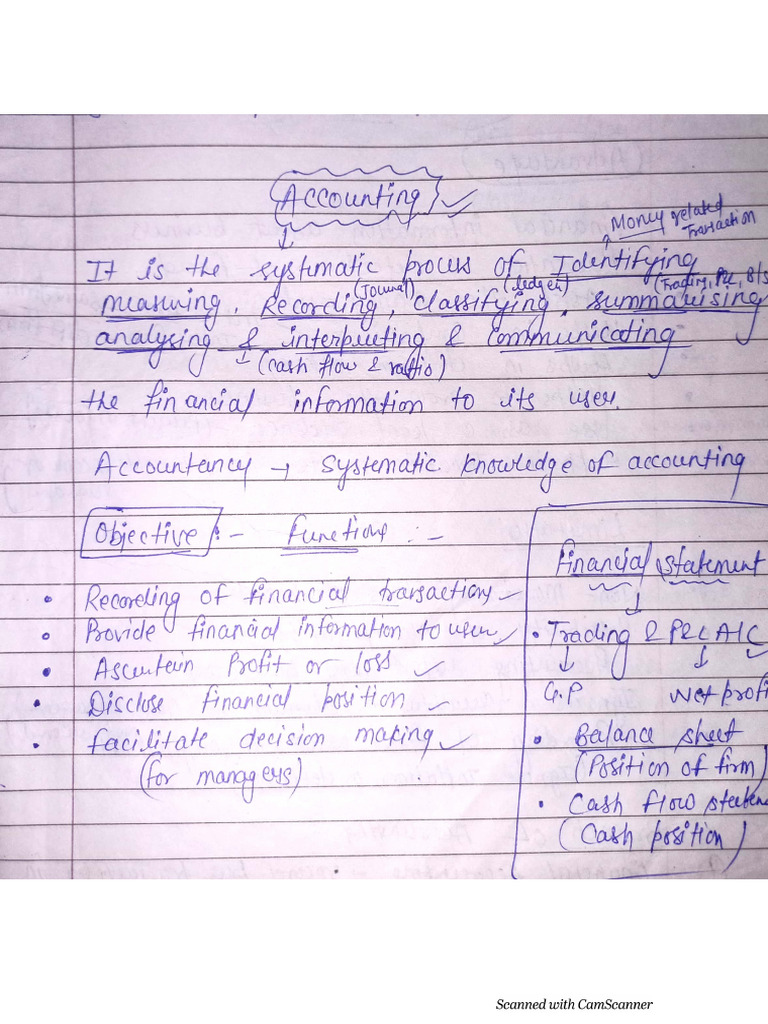 Accounting
Money related
Transaction
It is the systematic process of Identifying
(Journal) (ledger) (Trading, P&L, B/S
measuring, Recording, classifying, summarising
analysing & interpreting & communicating
(Cash flow & ratio)
the financial information to its user.
Accountancy → systematic knowledge of accounting
Objective :- Functions :-
• Recording of financial transactions
• Provide financial information to user
• Ascertain Profit or loss
• Disclose financial position
• facilitate decision making
(for managers)
Financial statement
• Trading & P&L A/C
G.P Net profi
• Balance sheet
(Position of firm)
• Cash flow stateme
(Cash position)
Scanned with CamScanner